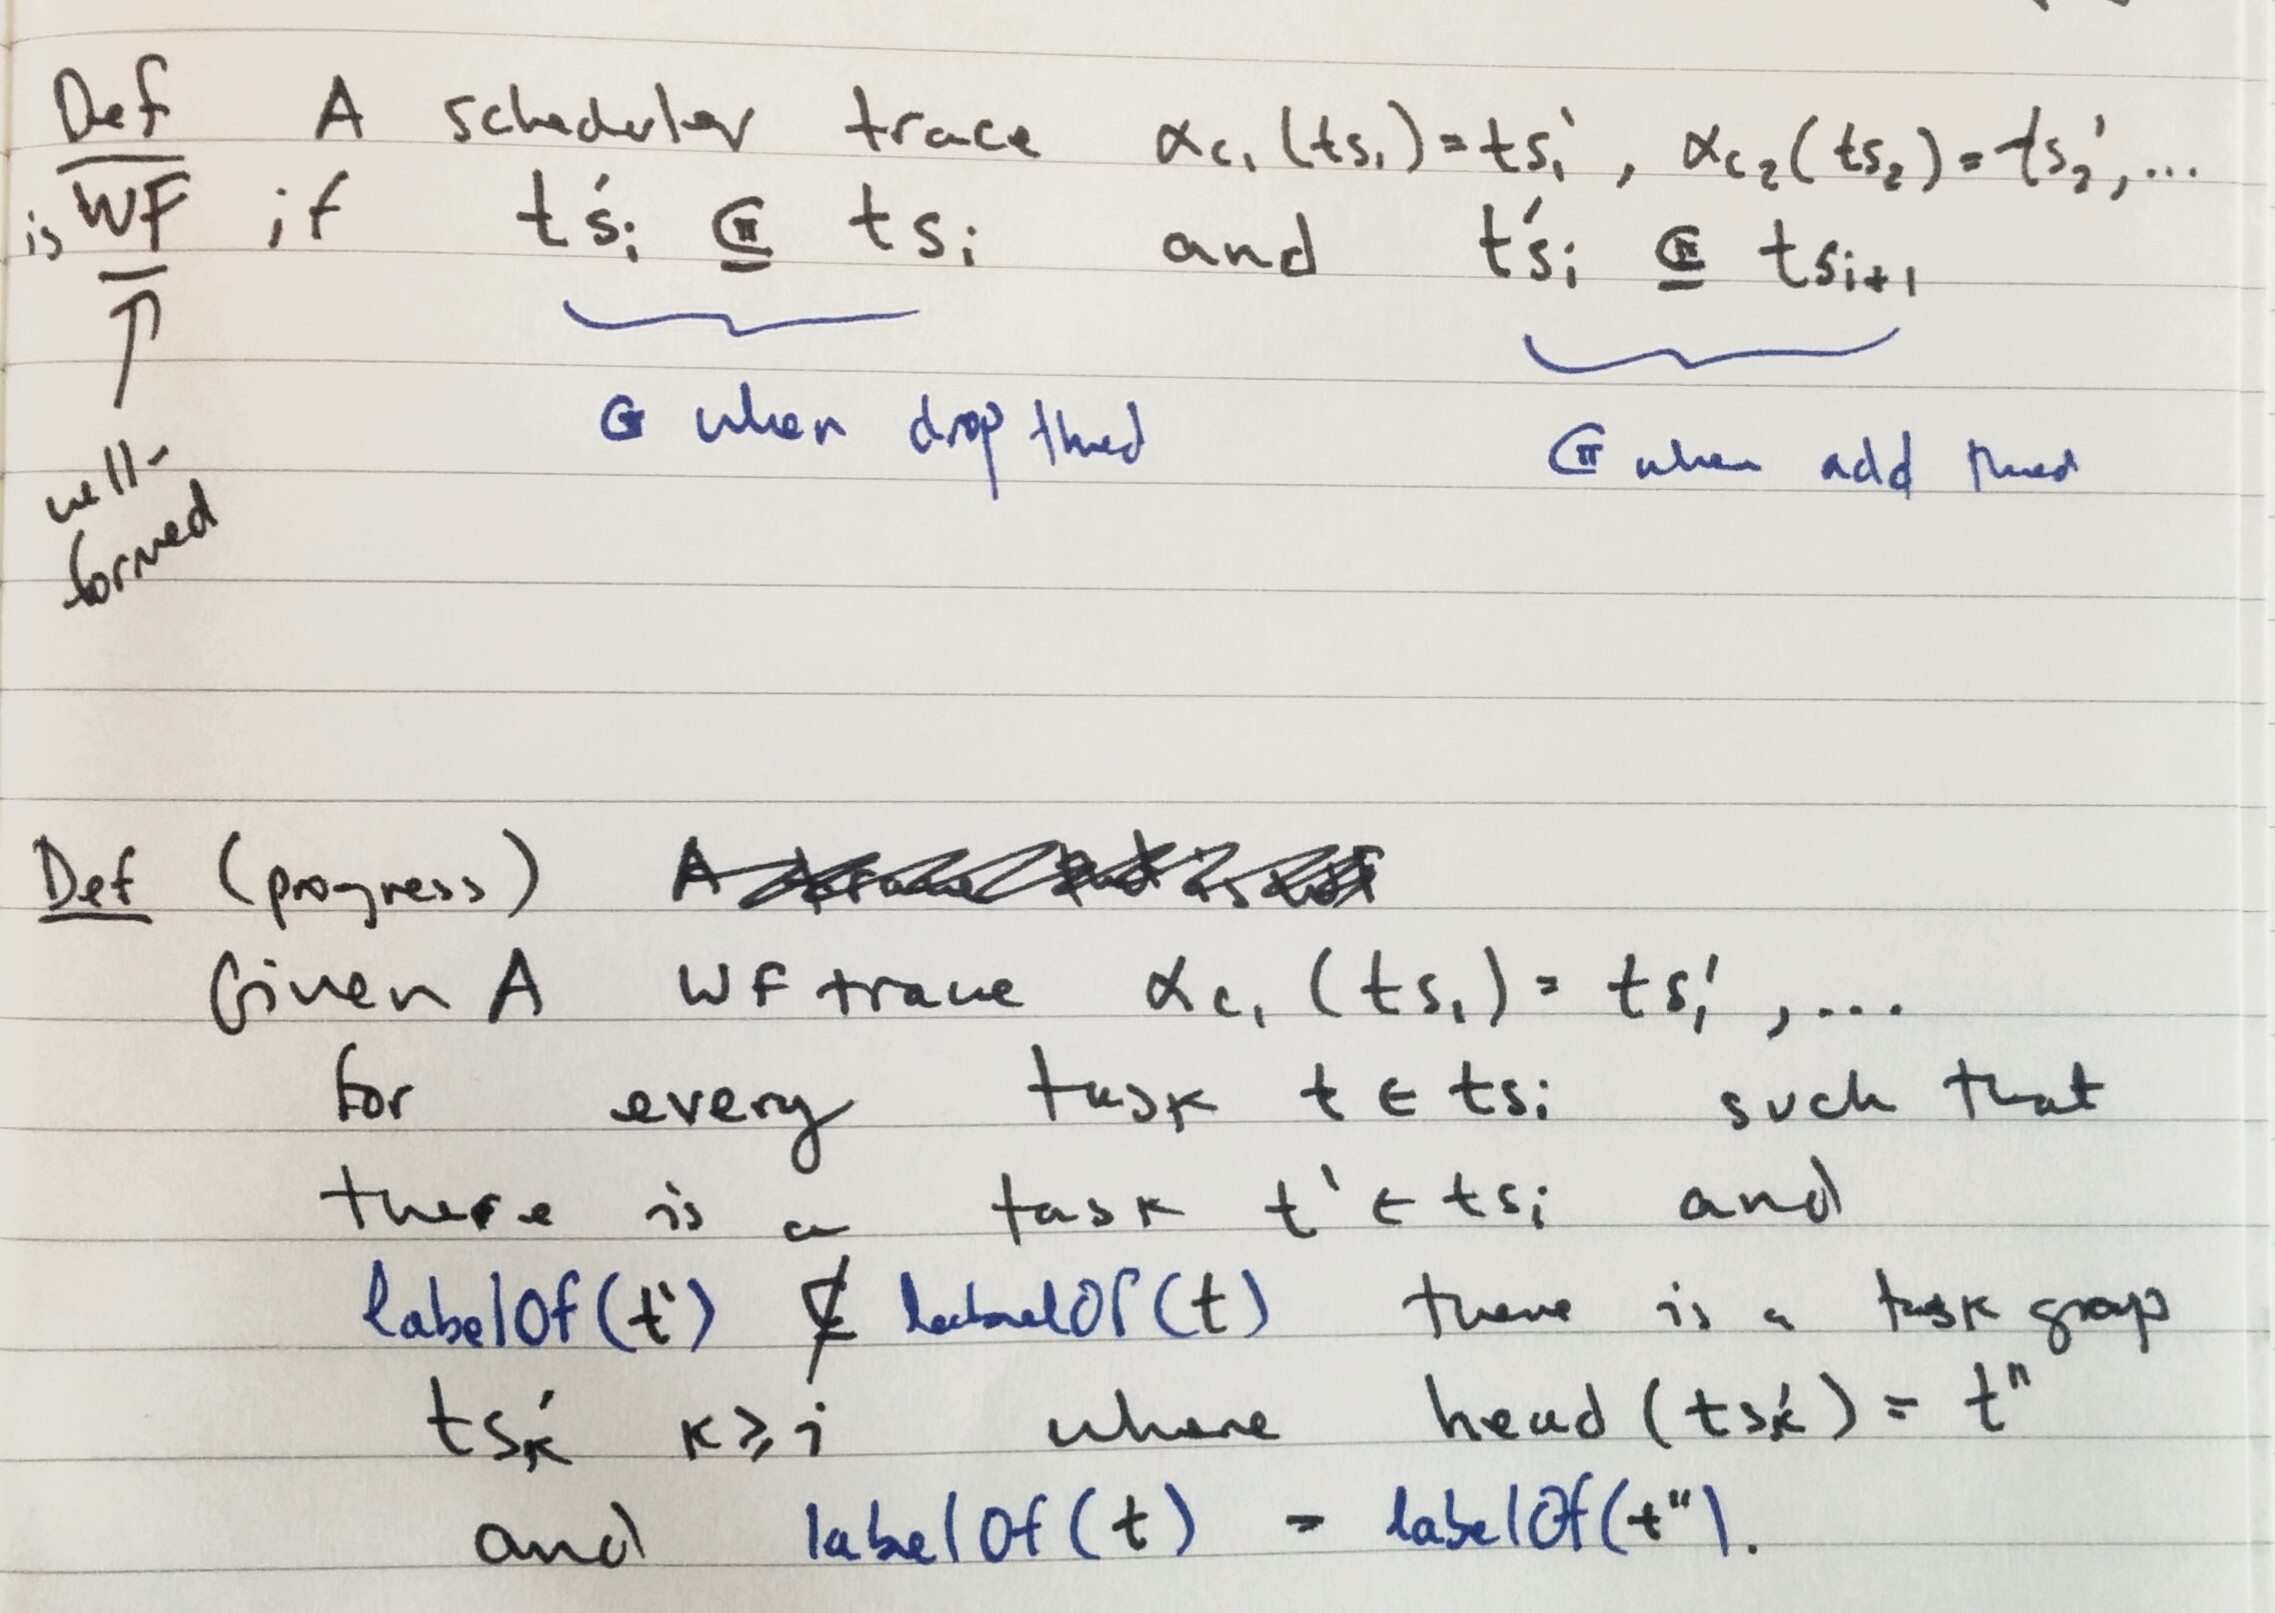 Def A scheduler trace αc₁(ts₁)=ts₁', αc₂(ts₂)=ts₂',...
is WF if ts'ᵢ ⋐ tsᵢ and ts'ᵢ ⋐ tsᵢ₊₁
↑
⋐ when drop thread
⋐ when add thread
well-
formed
Def (progress) A
Given A WF trace αc₁(ts₁)=ts₁',...
for every task t ∈ tsᵢ such that
there is a task t' ∈ tsᵢ and
labelOf(t') labelOf(t) there is a task group
ts'ₖ k≥i where head(ts'ₖ)=t"
and labelOf(t) = labelOf(t").